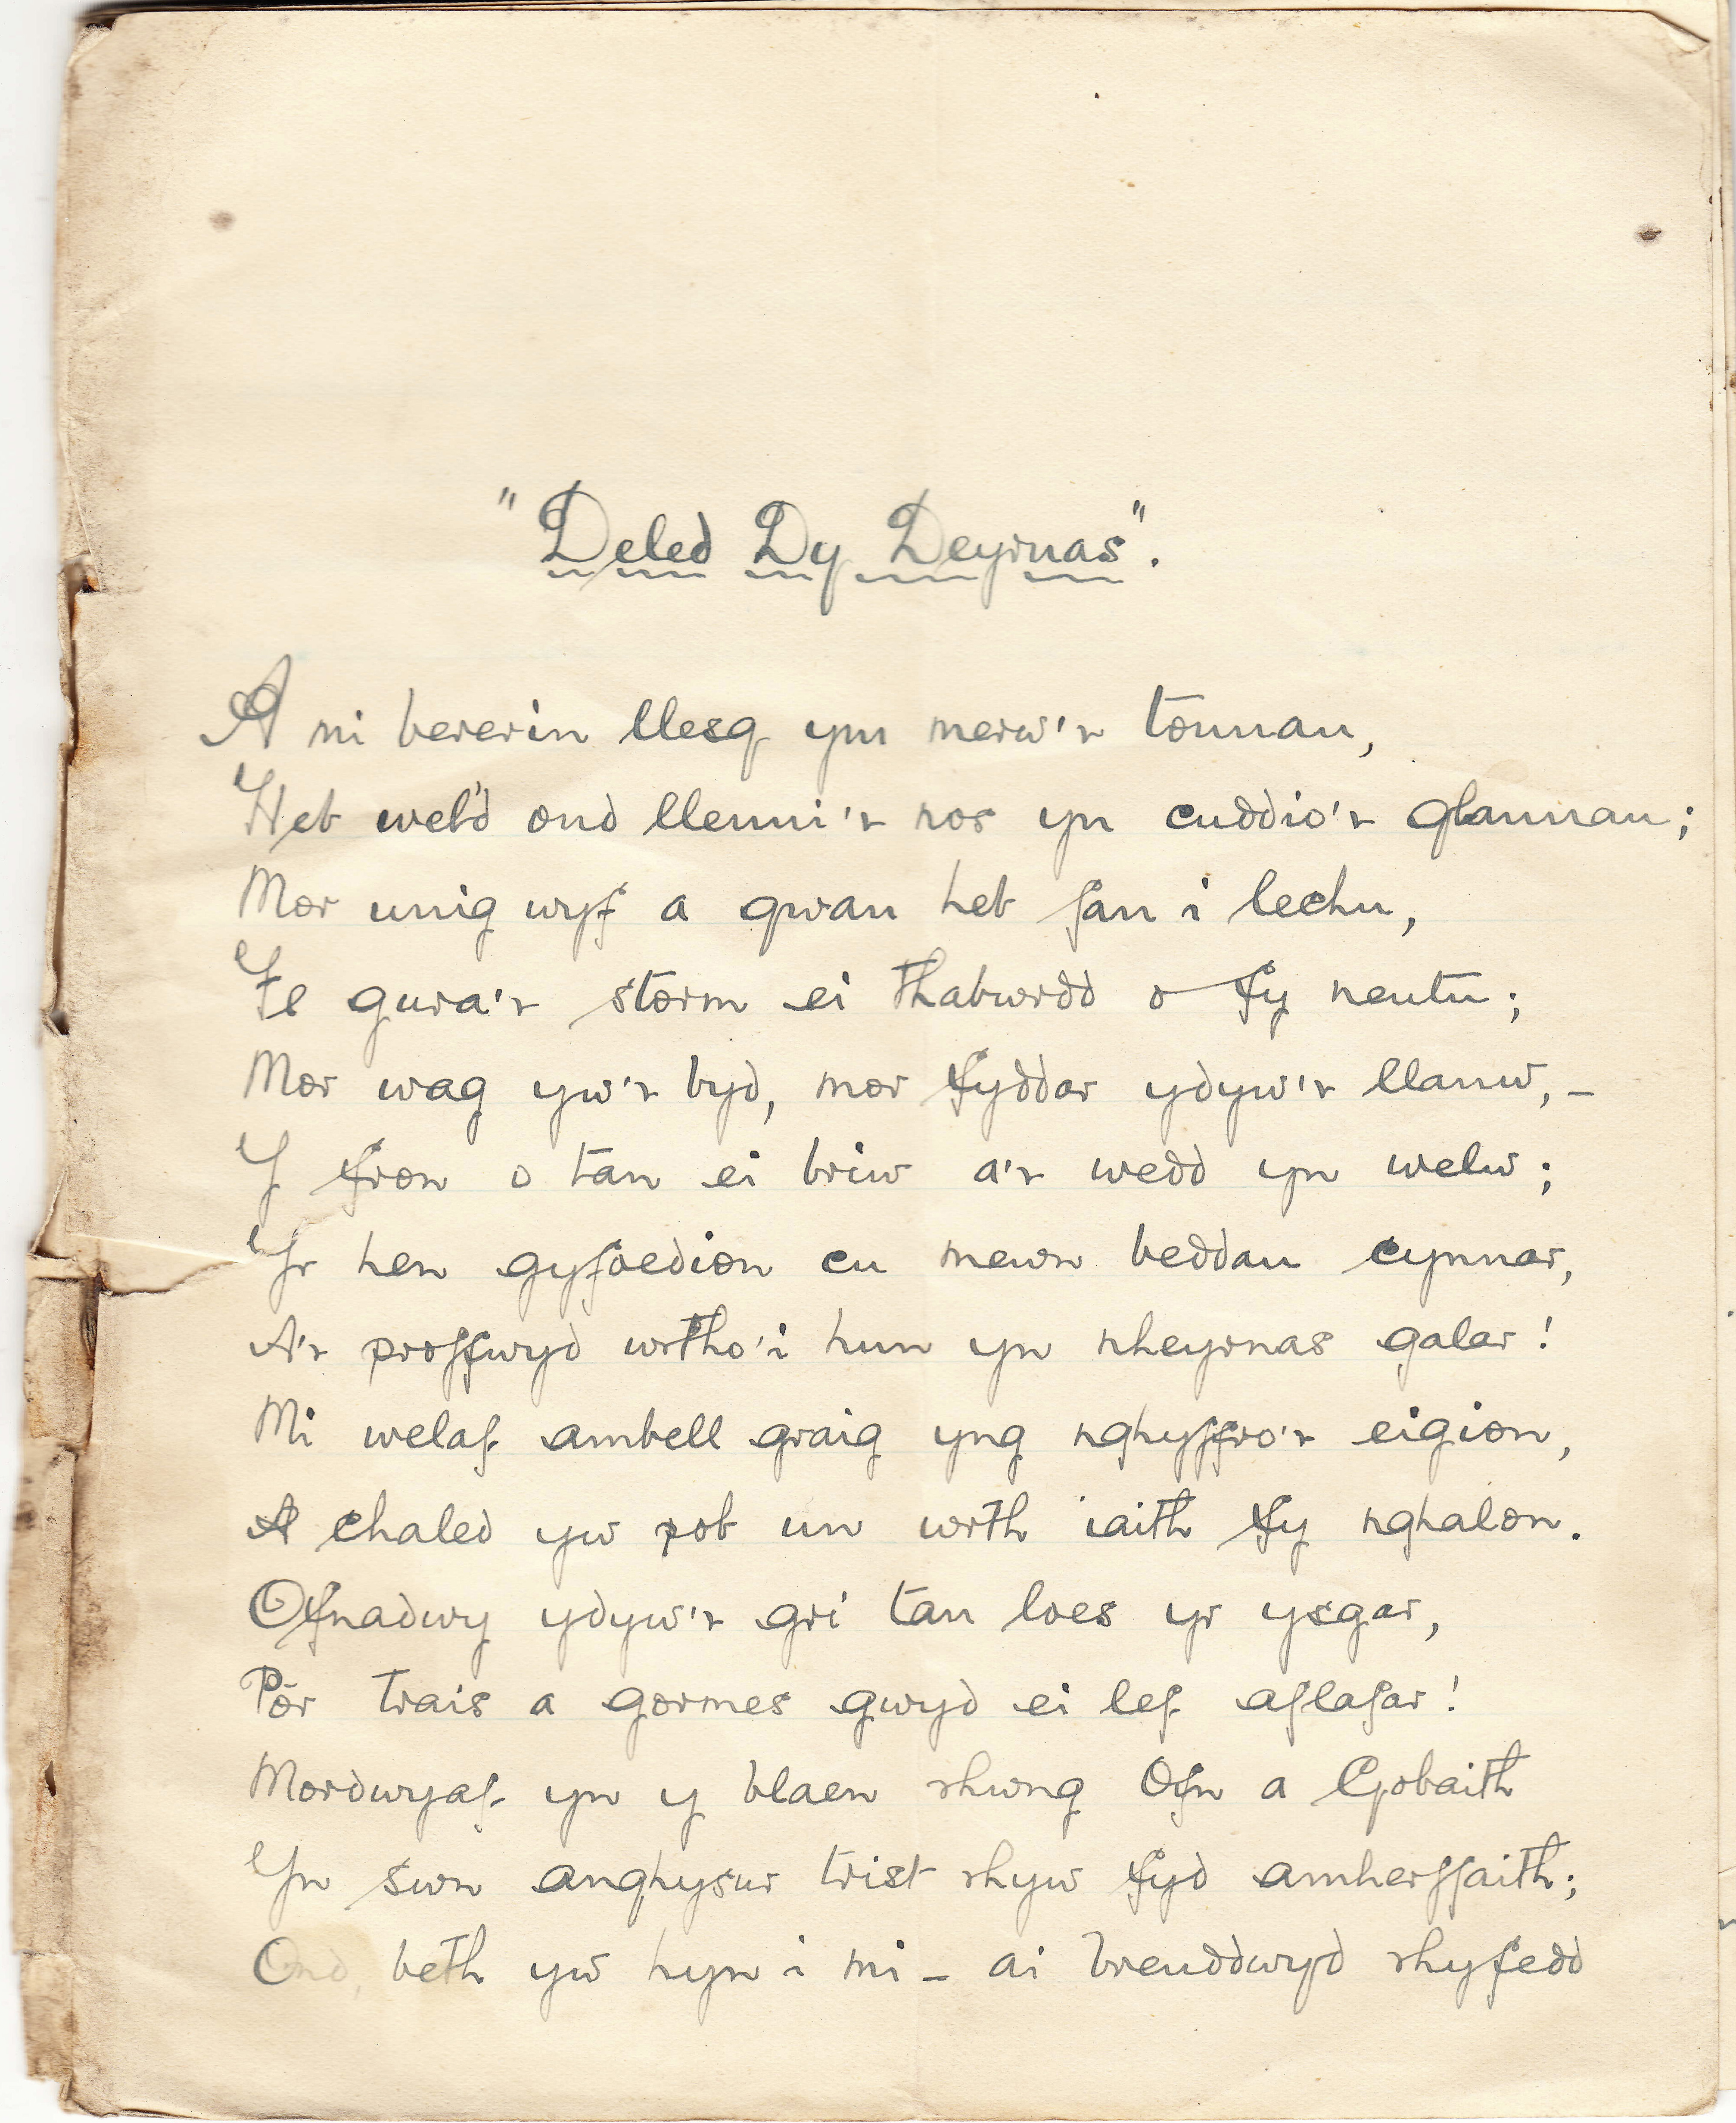 "Deled Dy Deyrnas".
A mi bererin llesg ym merw'r tonnau,
Heb wel'd ond llenni'r nos yn cuddio'r glannau;
Mor unig wyf a gwan heb fan i lechu,
Fe gura'r storm ei thabwrdd o fy neutu;
Mor wag yw'r byd, mor fyddar ydyw'r llanw, –
Y fron o tan ei briw a'r wedd yn welw;
Yr hen gyfoedion cu mewn beddau cynnar,
A'r proffwyd wrtho'i hun yn nheyrnas galar!
Mi welaf ambell graig yng nghyffro'r eigion,
A chaled yw pob un wrth iaith fy nghalon.
Ofnadwy ydyw'r gri tan loes yr ysgar,
Pôr trais a gormes gwyd ei lef aflafar!
Mordwyaf yn y blaen rhwng Ofn a Gobaith
Yn swn anghysur trist rhyw fyd amherffaith;
Ond, beth yw hyn i mi – ai breuddwyd rhyfedd